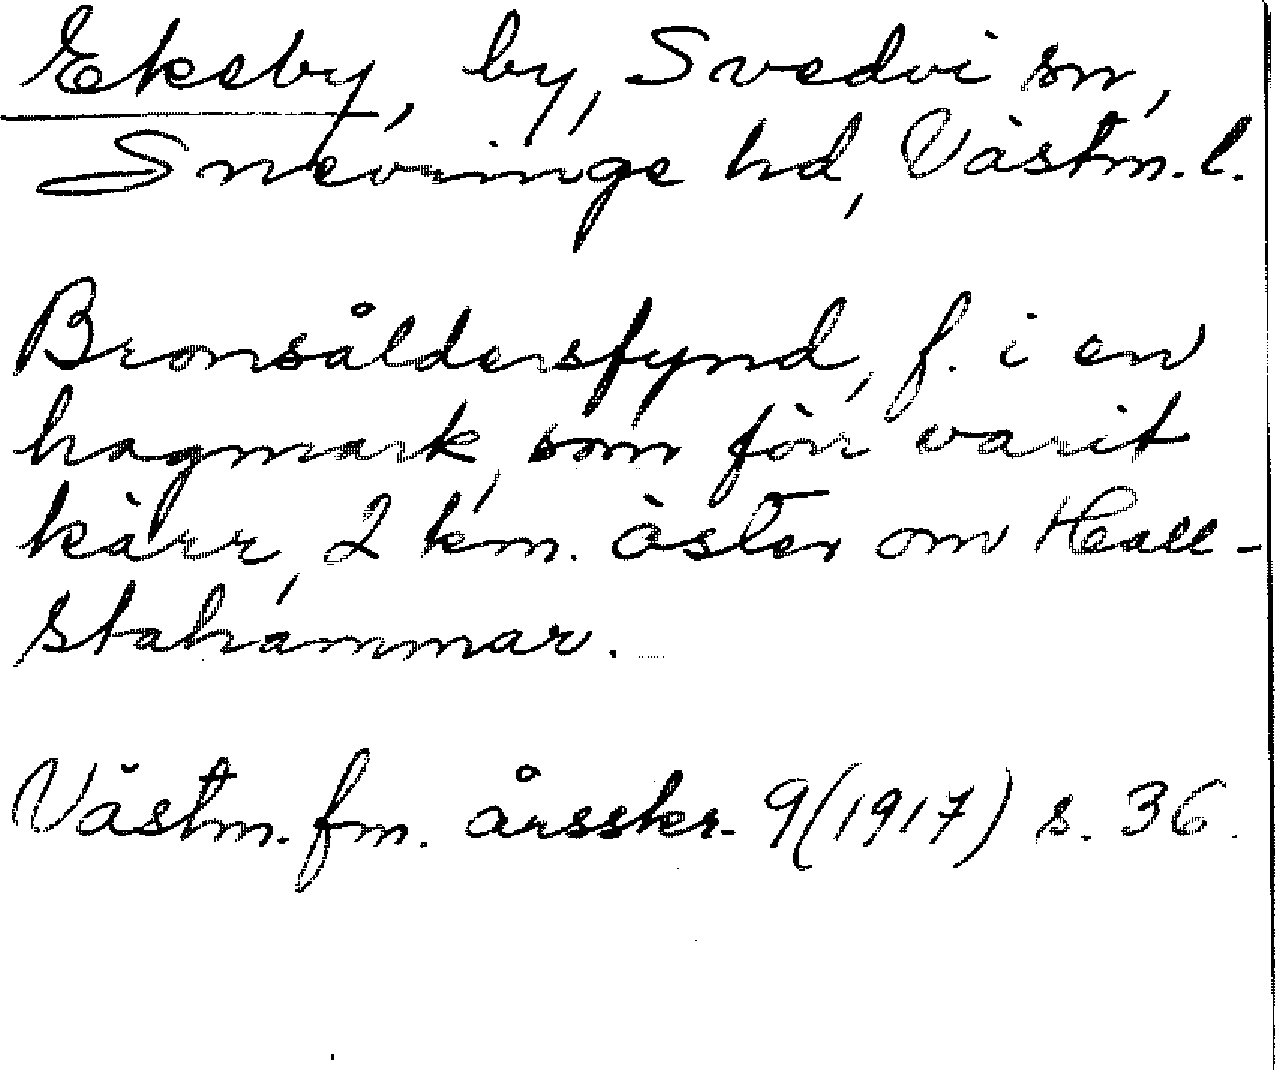 Ekeby, by, Svedvi sn,
Snevringe hd, Västm. l.
Bronsåldersfynd, f. i en
hagmark, som förr varit
kärr, 2 km. öster om Hall-
stahammar.
Västm. fm. årsskr. 9 (1917) s. 36.